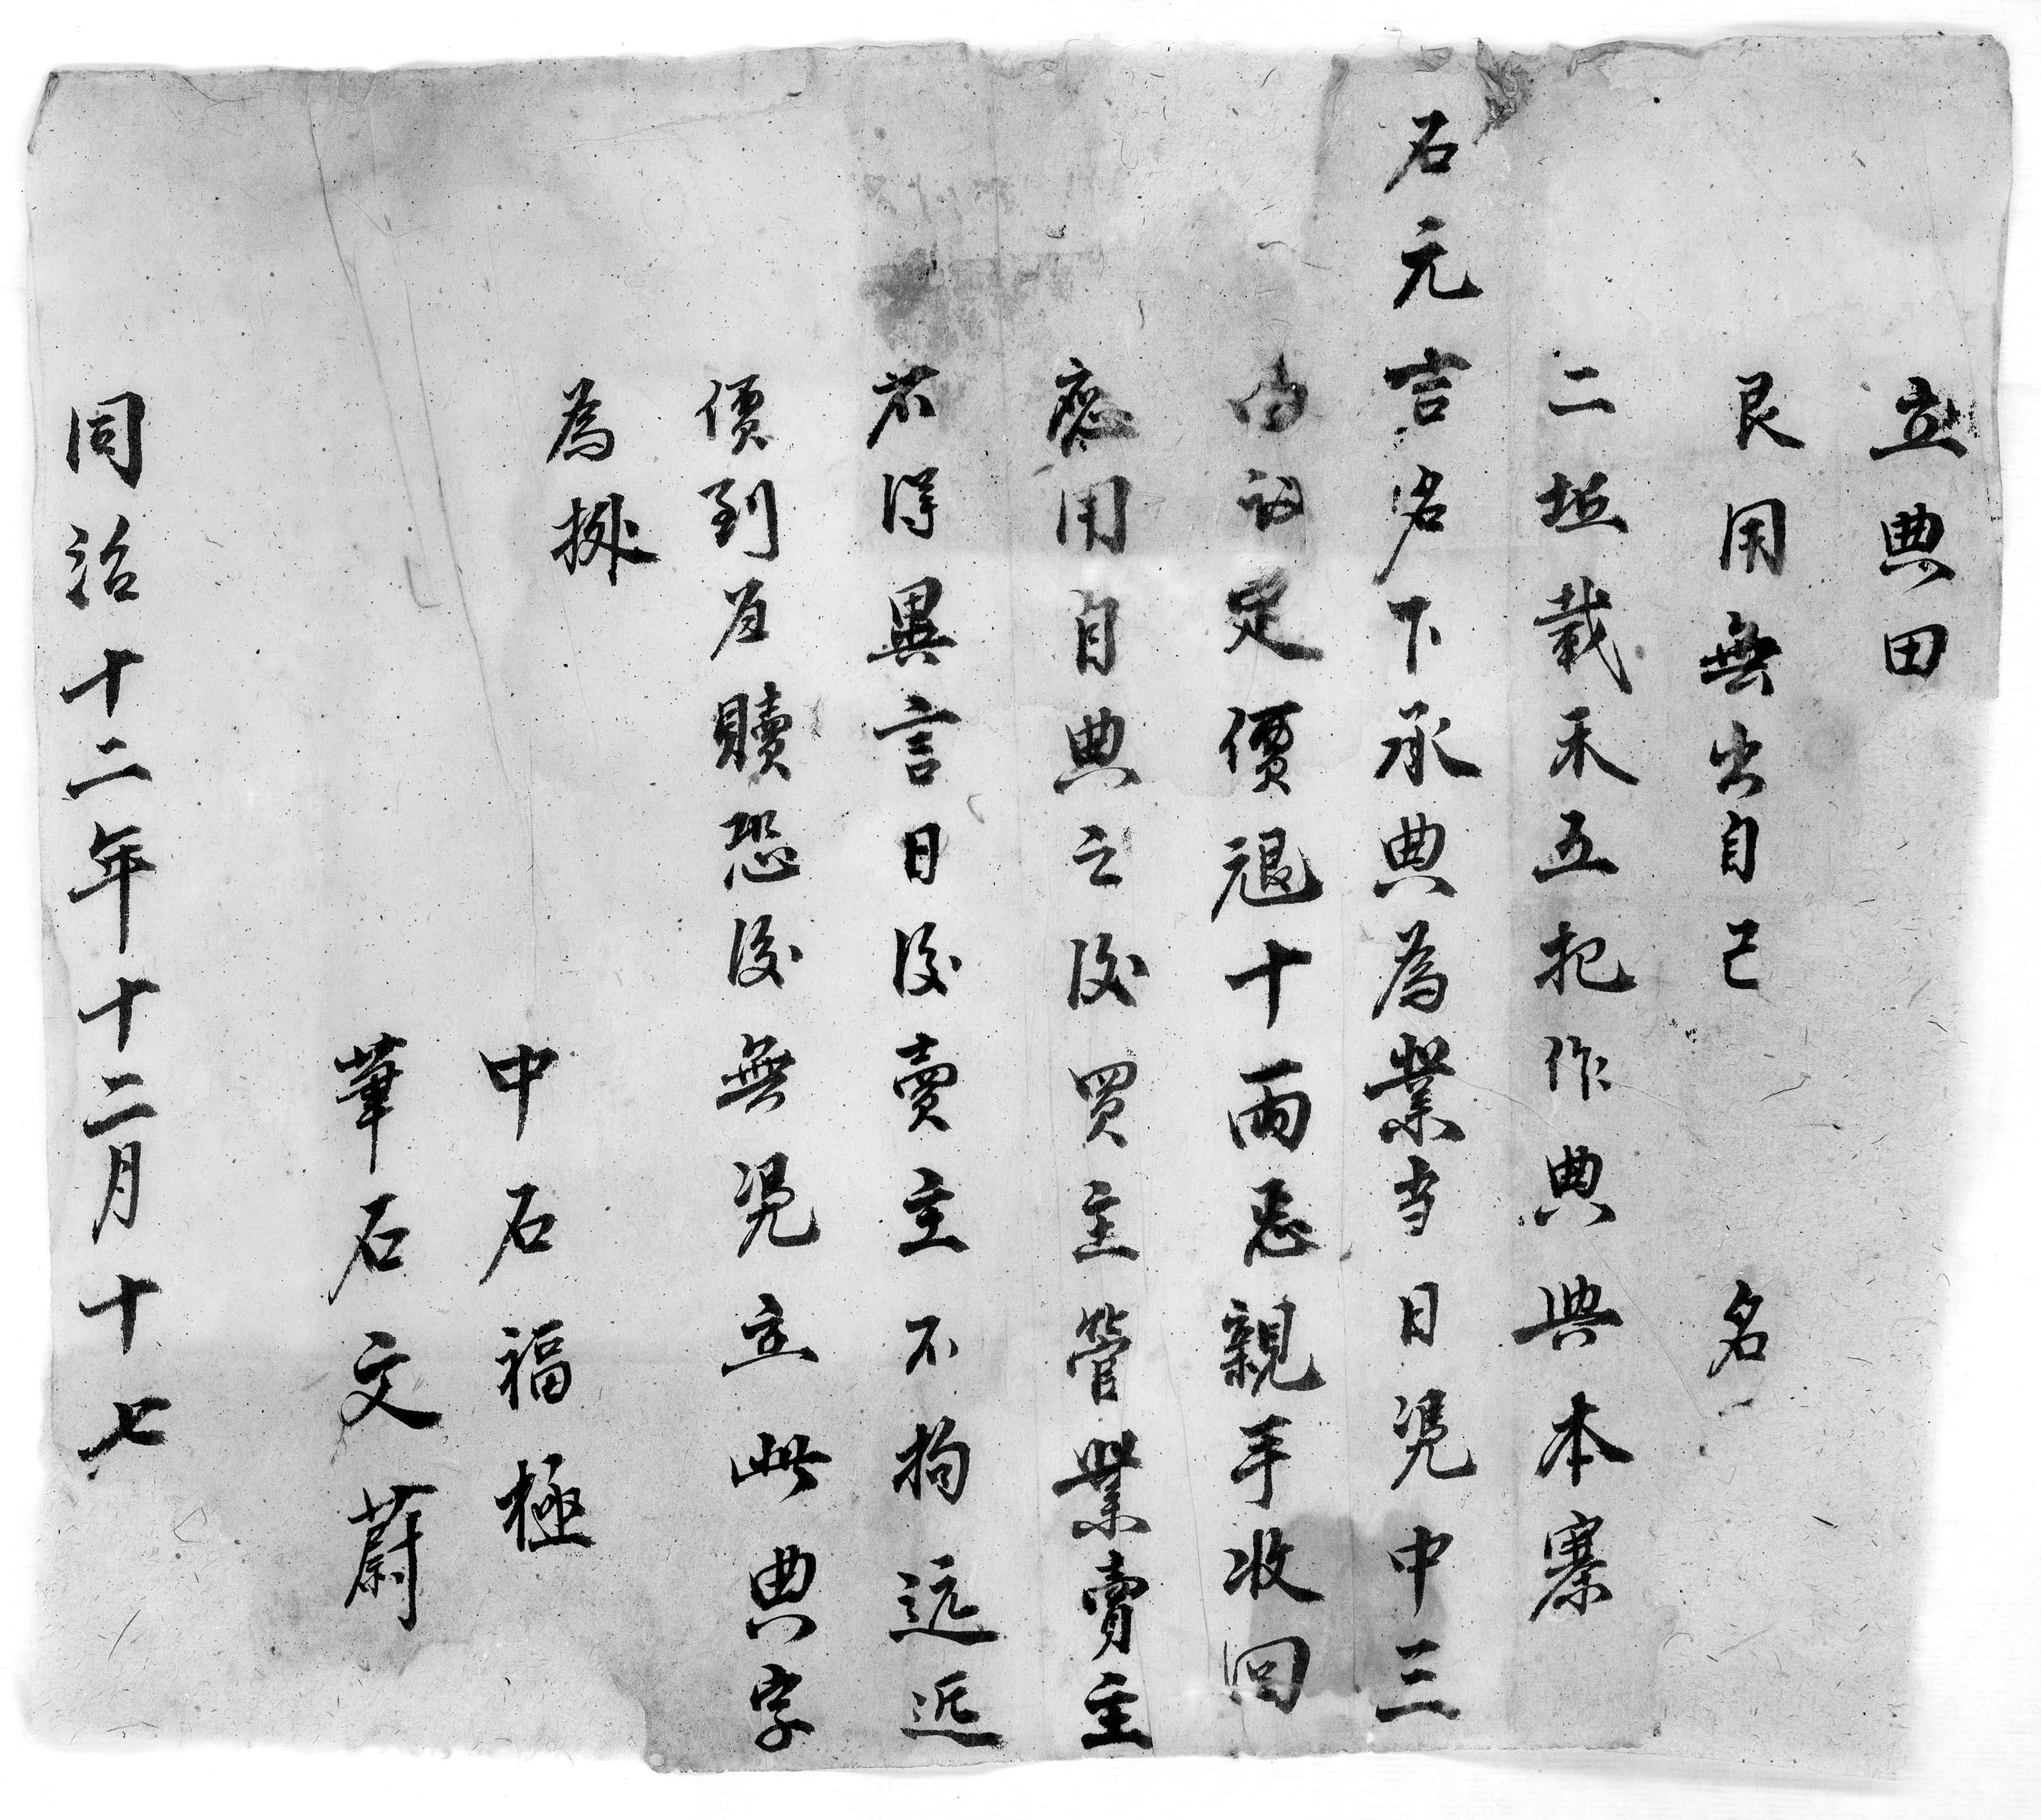 立典田
艮用無出自己名
二坵栽禾五把作典典本寨
石元言名下承典為業当日凴中三
面議足價艮十兩忝親手收回
應用自典之後買主管業賣主
不得異言日後賣主不拘远近
價到応贖恐後無凴立此典字
為拠
中石福極
筆石文蔚
同治十二年十二月十七